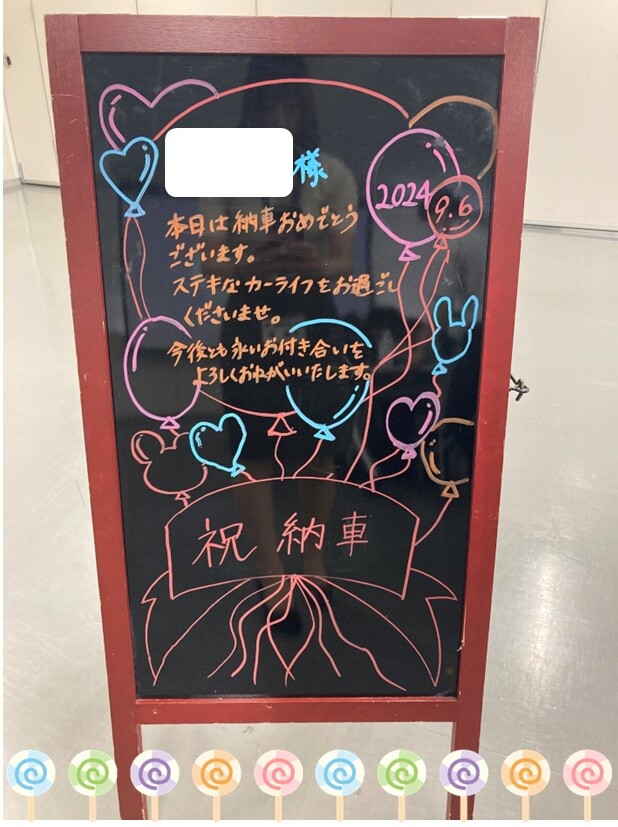 様
2024
9.6
本日は納車おめでとう
ございます。
ステキなカーライフをお過ごし
くださいませ。
今後とも永いお付き合いを
よろしくおねがいいたします。
祝 納車